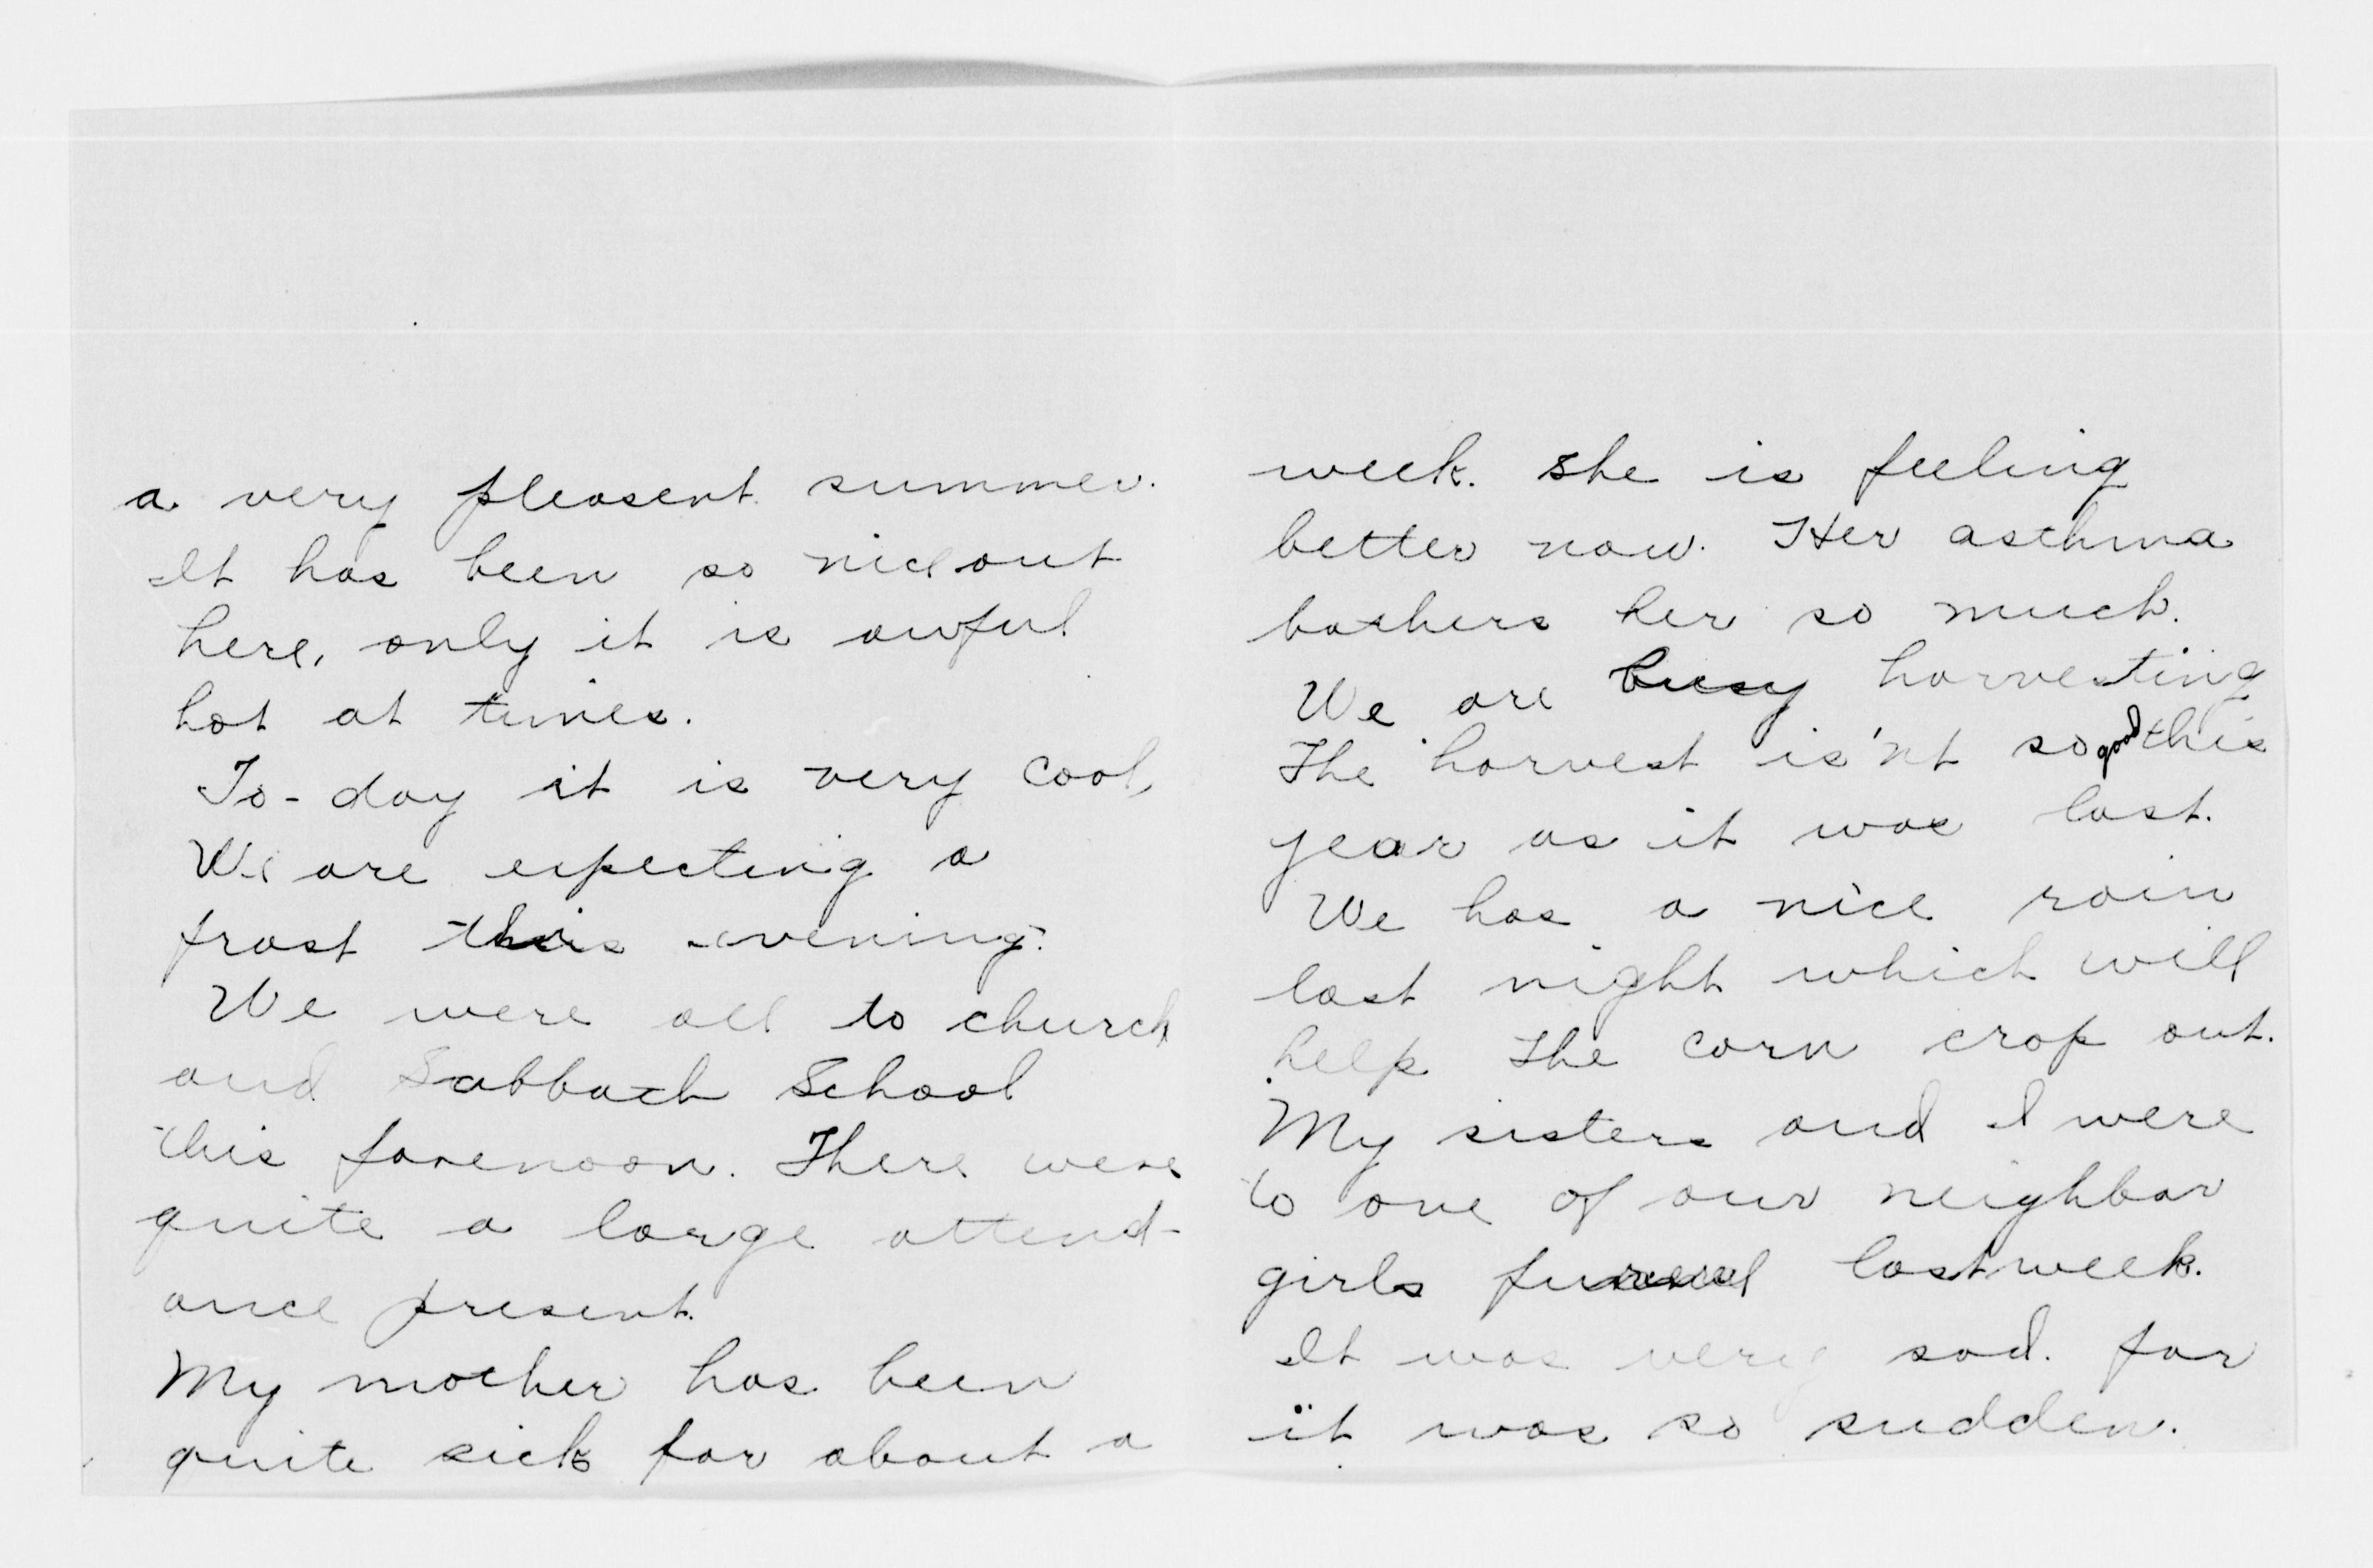 a very pleasent summer.
It has been so nice out
here, only it is awful
hot at times.
To-day it is very cool,
We are expecting a
frost this evening.
We were all to church
and Sabbath School
this forenoon. There were
quite a large attend-
ance present.
My mother has been
quite sick for about a
week. she is feeling
better now. Her asthma
bothers her so much.
We are busy harvesting
The harvest is'nt so good this
year as it was last.
We has a nice rain
last night which will
help the corn crop out.
My sisters and I were
to one of our neighbor
girls funeral last week.
It was very sad. for
it was so sudden.